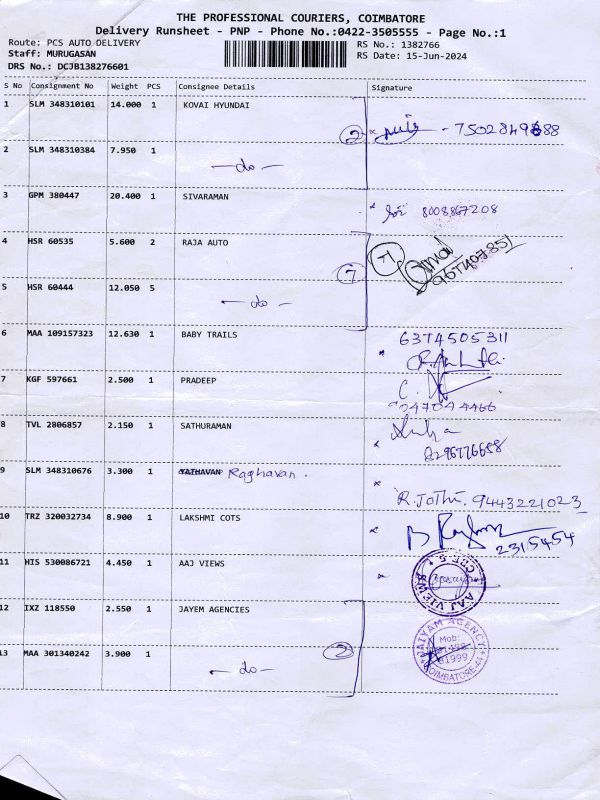 THE PROFESSIONAL COURIERS, COIMBATORE
Delivery Runsheet - PNP - Phone No.:0422-3505555 - Page No.:1
Route: PCS AUTO DELIVERY
RS No.: 1382766
Staff: MURUGASAN
RS Date: 15-Jun-2024
DRS No.: DCJB138276601
S No Consignment No Weight PCS Consignee Details Signature
1 SLM 348310101 14.000 1 KOVAI HYUNDAI
2 - 7502849888
2 SLM 348310384 7.950 1
- do -
3 GPM 380447 20.400 1 SIVARAMAN
8008867208
4 HSR 60535 5.600 2 RAJA AUTO
7
5 HSR 60444 12.050 5
- do -
6 MAA 109157323 12.630 1 BABY TRAILS 6374505311
7 KGF 597661 2.500 1 PRADEEP
8 TVL 2806857 2.150 1 SATHURAMAN
9 SLM 348310676 3.300 1 YATHAVAN Raghavan.
R. Jothi. 9443221023
10 TRZ 320032734 8.900 1 LAKSHMI COTS
2315454
11 HIS 530086721 4.450 1 AAJ VIEWS
AAJ VIEWS
12 IXZ 118550 2.550 1 JAYEM AGENCIES
JAIYAM AGENCY
Mob:
COIMBATORE-44
13 MAA 301340242 3.900 1
2
- do -